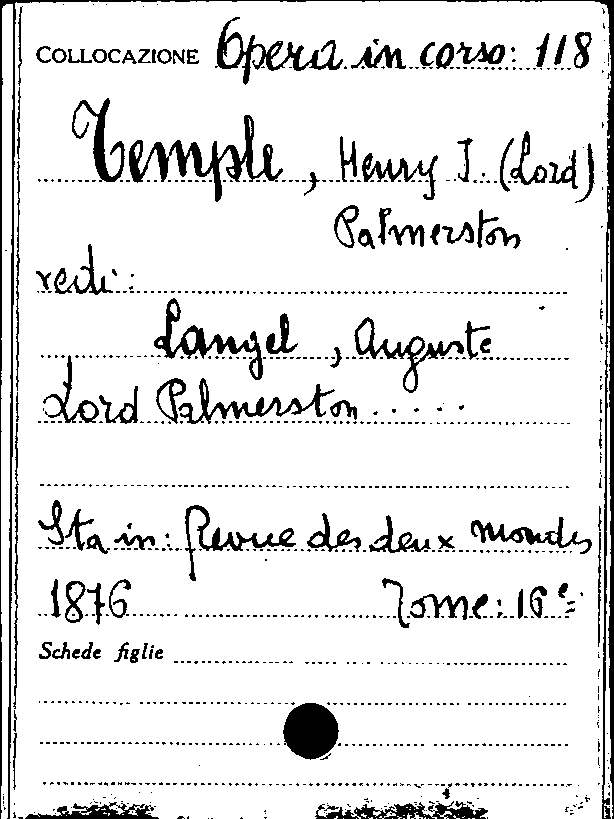 COLLOCAZIONE Opera in corso: 118
Temple, Henry J. (Lord)
Palmerston
vedi:
Laugel, Auguste
Lord Palmerston.....
Sta in: Revue des deux mondes
1876 Tome: 16e
Schede figlie